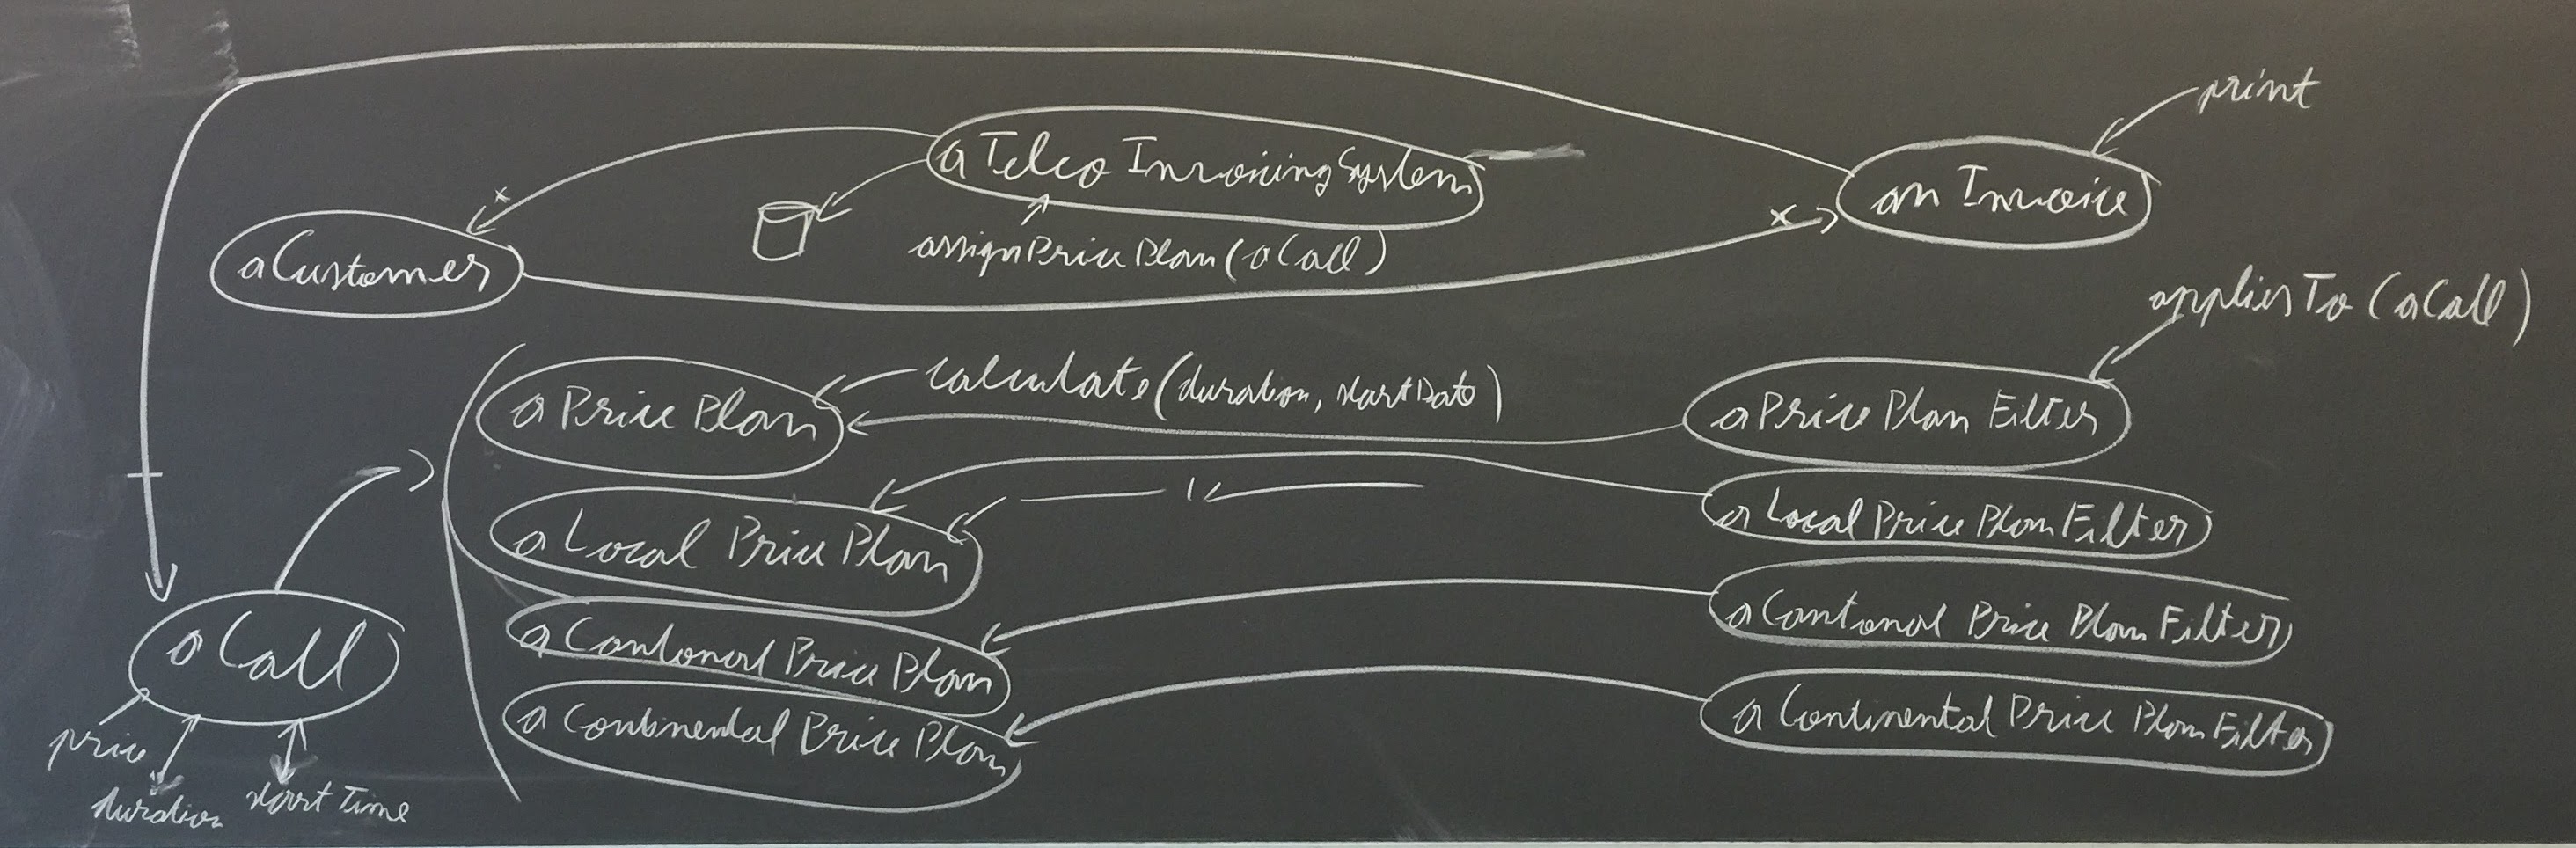 print
a Telco Invoicing System
an Invoice
assignPricePlan (aCall)
aCustomer
appliesTo (aCall)
calculate (duration, startDate)
a Price Plan
a Price Plan Filter
a Local Price Plan
a Local Price Plan Filter
a Cantonal Price Plan
a Cantonal Price Plan Filter
a Call
a Continental Price Plan
a Continental Price Plan Filter
price
duration
start Time